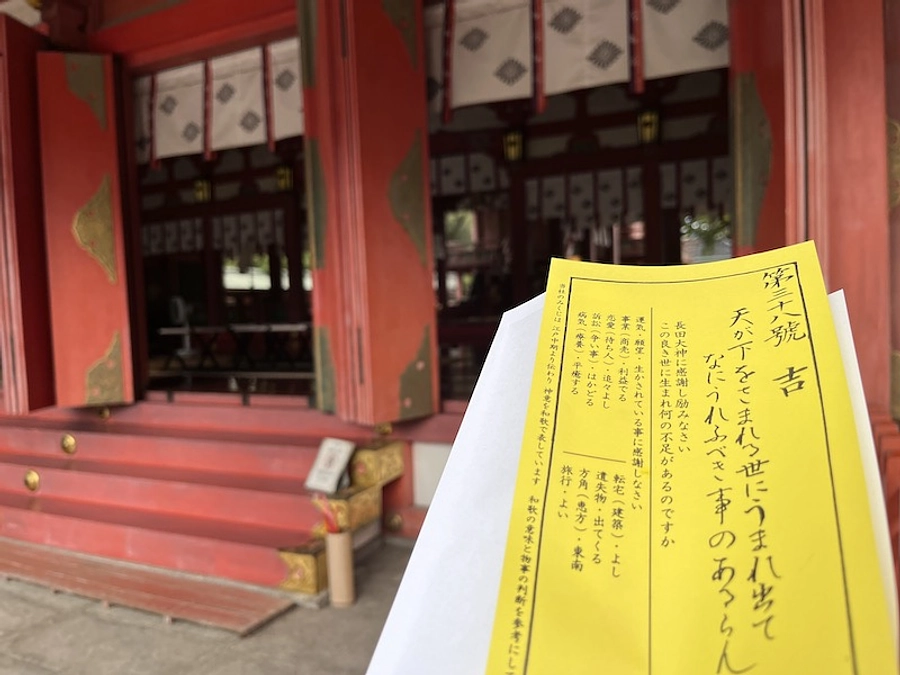 第三十八號 吉
天が下をさまれる世にうまれ出て
なにうれふべき事のあるらん
長田大神に感謝し励みなさい
この良き世に生まれ何の不足があるのですか
運気・願望・生かされている事に感謝しなさい
事業（商売）・利益でる
恋愛（待ち人）・追々よし
訴訟（争い事）・はかどる
病気（療養）・平癒する
転宅（建築）・よし
遺失物・出てくる
方角（恵方）・東南
旅行・よい
当社のみくじは、江戸中期より伝わり 神意を和歌で表しています 和歌の意味と物事の判断を参考にし